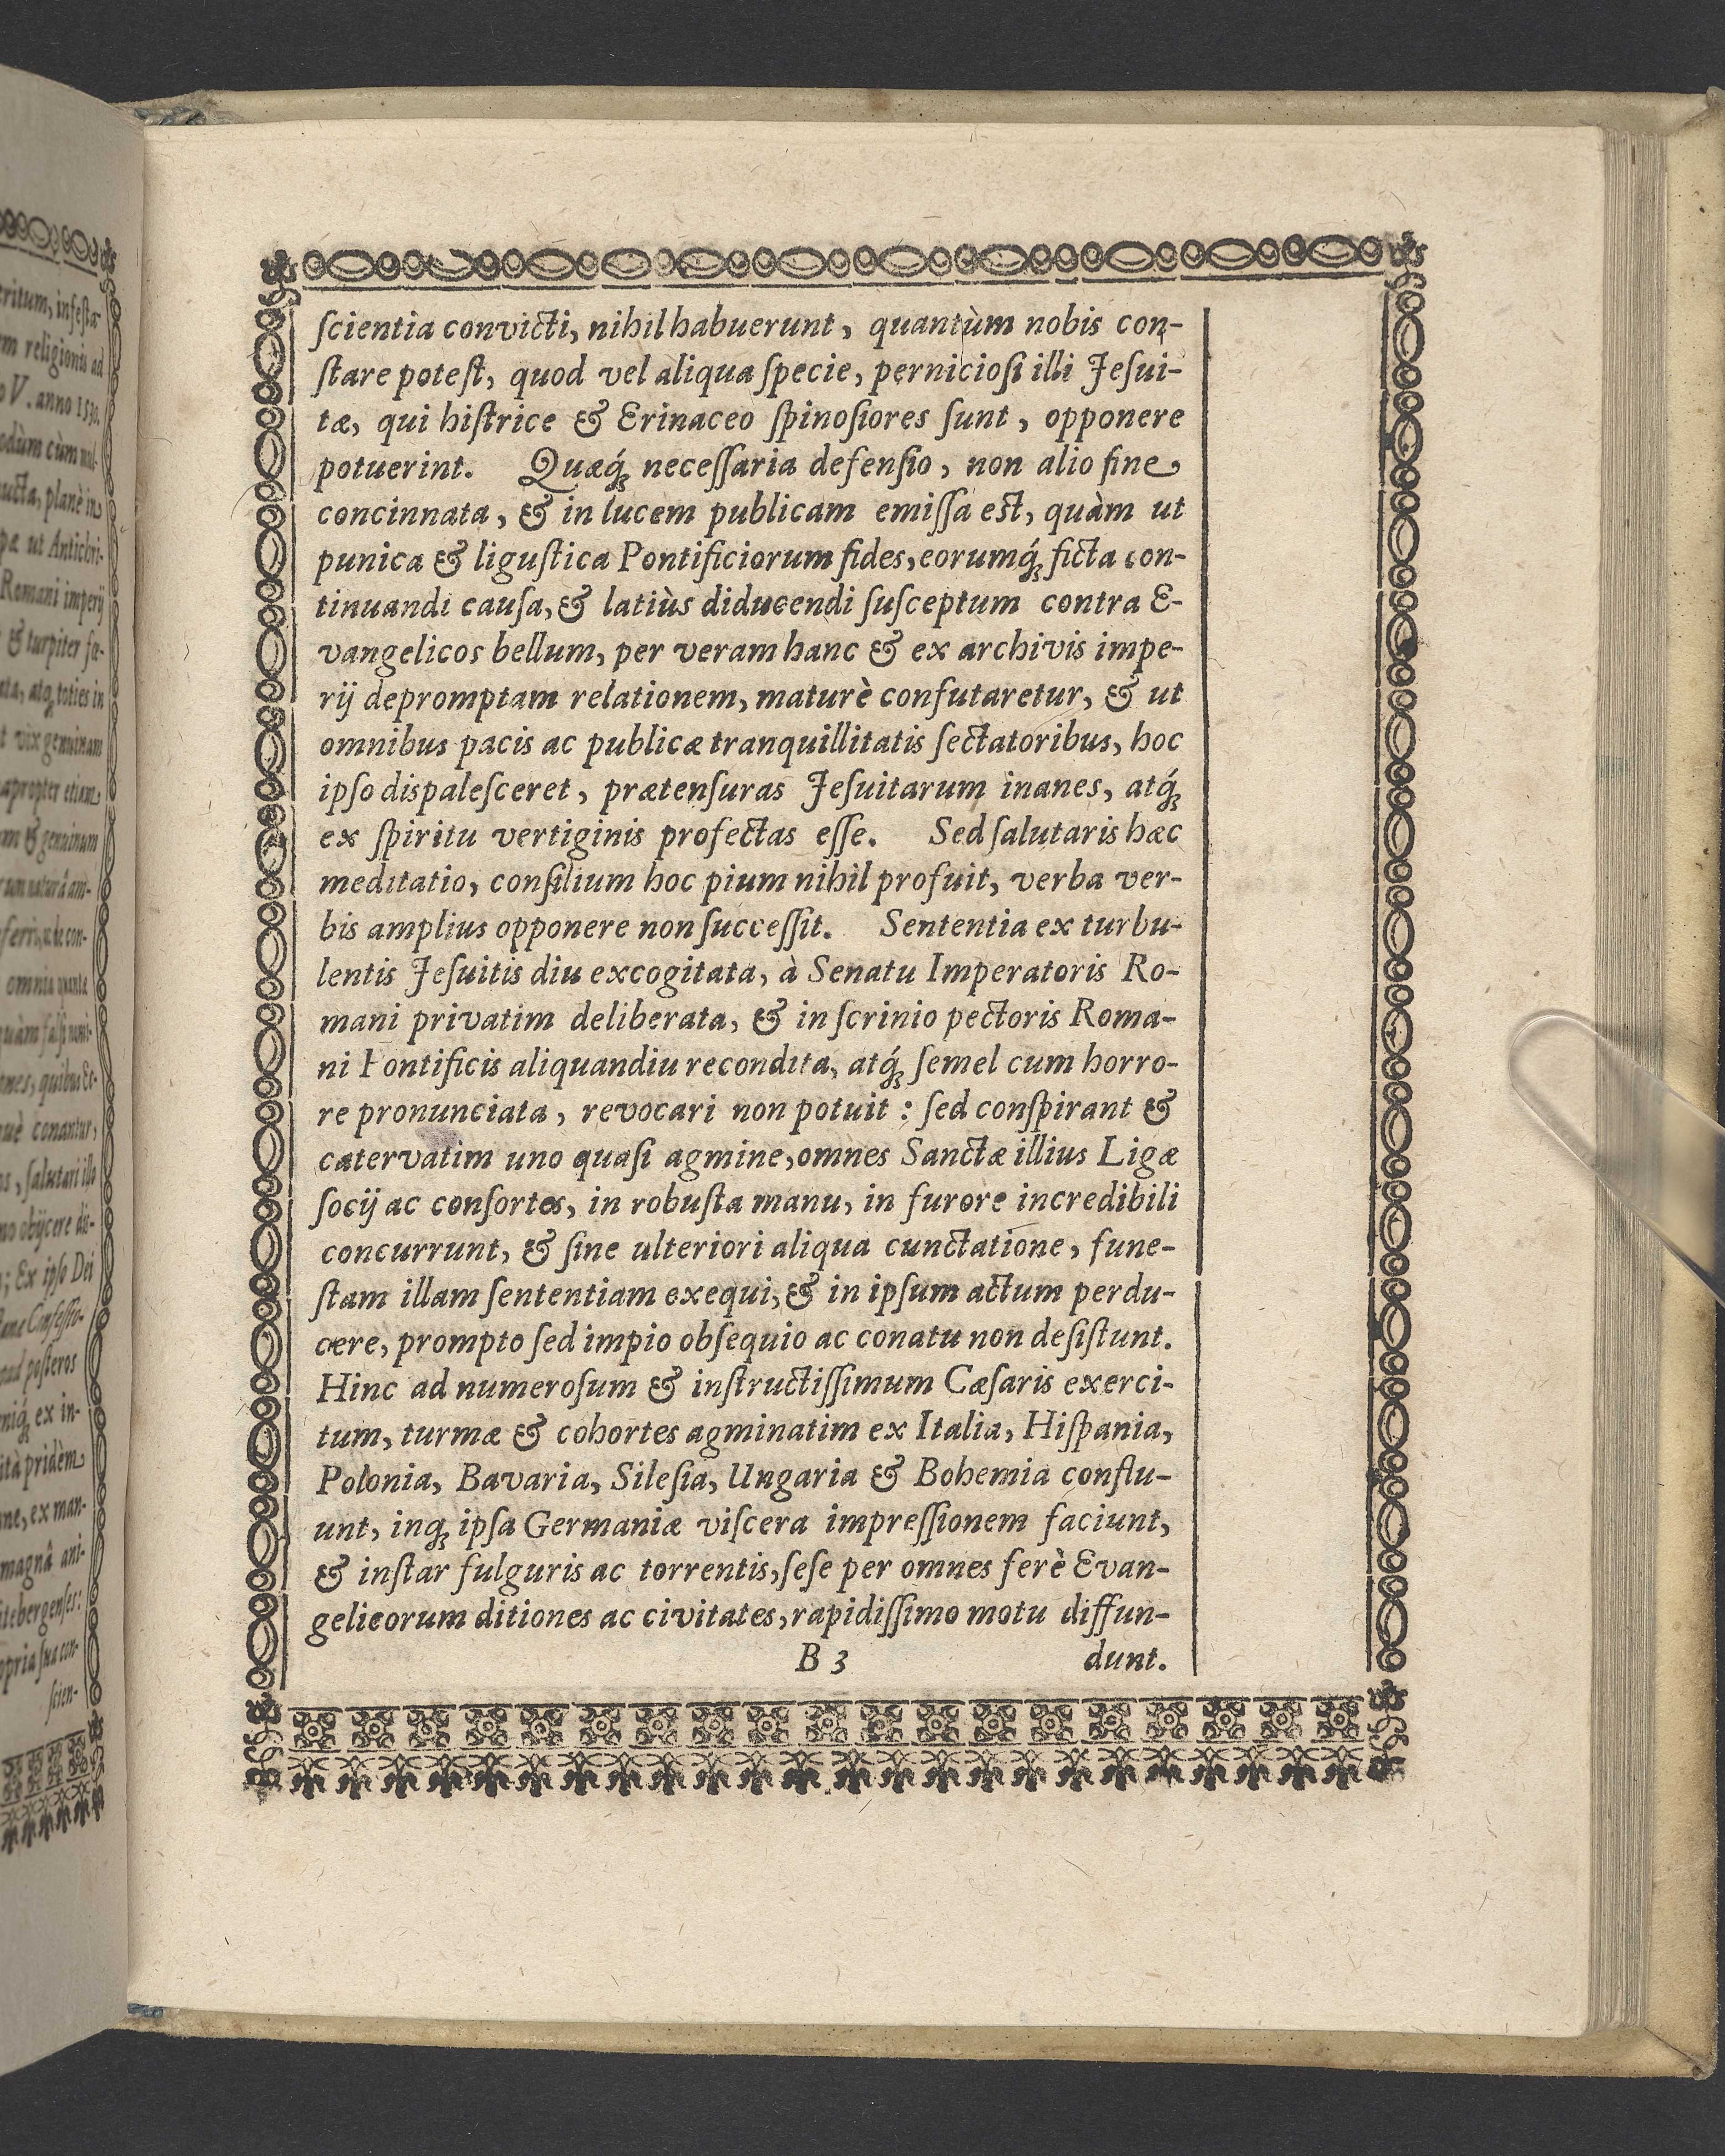 ſcientia convicti, nihil habuerunt, quantùm nobis con-
ſtare poteſt, quod vel aliqua ſpecie, pernicioſi illi Jeſui-
tæ, qui hiſtrice & Erinaceo ſpinoſiores ſunt, opponere
potuerint. Quæq́; neceſſaria defenſio, non alio fine
concinnata, & in lucem publicam emiſſa eſt, quàm ut
punica & liguſtica Pontificiorum fides, eorumq́; ficta con-
tinuandi cauſa, & latiùs diducendi ſuſceptum contra E-
vangelicos bellum, per veram hanc & ex archivis impe-
rij depromptam relationem, maturè confutaretur, & ut
omnibus pacis ac publicæ tranquillitatis ſectatoribus, hoc
ipſo diſpaleſceret, prætenſuras Jeſuitarum inanes, atq́;
ex ſpiritu vertiginis profectas eſſe. Sed ſalutaris hæc
meditatio, conſilium hoc pium nihil profuit, verba ver-
bis amplius opponere non ſucceſſit. Sententia ex turbu-
lentis Jeſuitis diu excogitata, à Senatu Imperatoris Ro-
mani privatim deliberata, & in ſcrinio pectoris Roma-
ni Pontificis aliquandiu recondita, atq́; ſemel cum horro-
re pronunciata, revocari non potuit: ſed conſpirant &
catervatim uno quaſi agmine, omnes Sanctæ illius Ligæ
ſocij ac conſortes, in robuſta manu, in furore incredibili
concurrunt, & ſine ulteriori aliqua cunctatione, fune-
ſtam illam ſententiam exequi, & in ipſum actum perdu-
cere, prompto ſed impio obſequio ac conatu non deſiſtunt.
Hinc ad numeroſum & inſtructiſſimum Cæſaris exerci-
tum, turmæ & cohortes agminatim ex Italia, Hiſpania,
Polonia, Bavaria, Sileſia, Ungaria & Bohemia conflu-
unt, inq; ipſa Germaniæ viſcera impreſſionem faciunt,
& inſtar fulguris ac torrentis, ſeſe per omnes ferè Evan-
gelicorum ditiones ac civitates, rapidiſſimo motu diffun-
B 3 dunt.